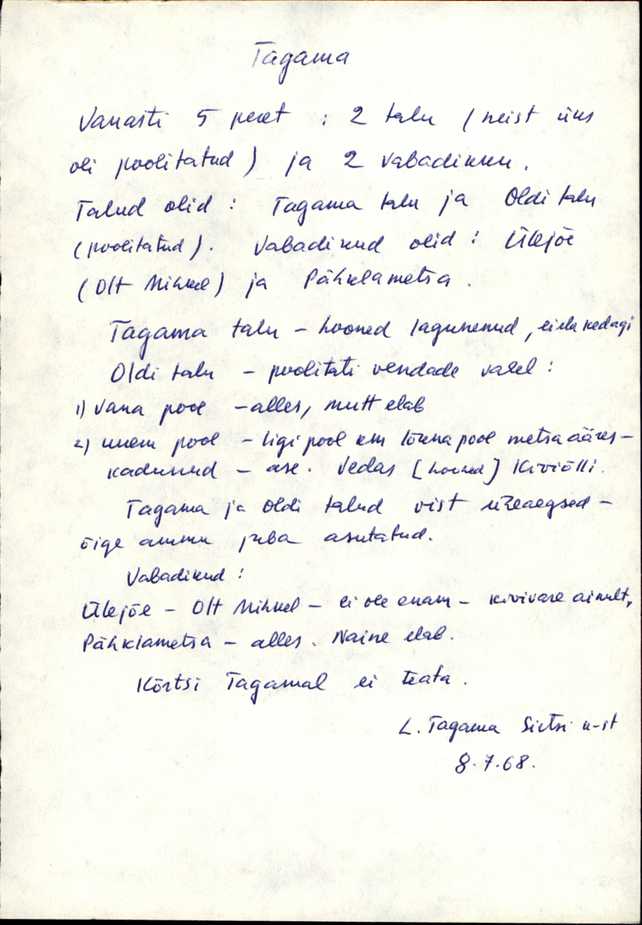 Tagama
Vanasti 5 peret : 2 talu (neist üks
oli poolitatud) ja 2 vabadikku.
Talud olid : Tagama talu ja Oldi talu
(poolitatud). Vabadikud olid : Ülejõe
(Olt Mihkel) ja Pähklametsa.
Tagama talu – hooned lagunenud, ei ela kedagi
Oldi talu – poolitati vendade vahel :
1) Vana pool – alles, mutt elab
2) uuem pool – ligi pool km lõuna pool metsa ääres –
kadunud – ase. Vedas [hooned] Kiviõlli.
Tagama ja Oldi talud vist üheaegsed –
õige ammu juba asutatud.
Vabadikud :
Ülejõe – Olt Mihkel – ei ole enam – kivivare ainult,
Pähklametsa – alles. Naine elab.
Kõrtsi Tagamal ei teata.
L. Tagama
8.7.68.